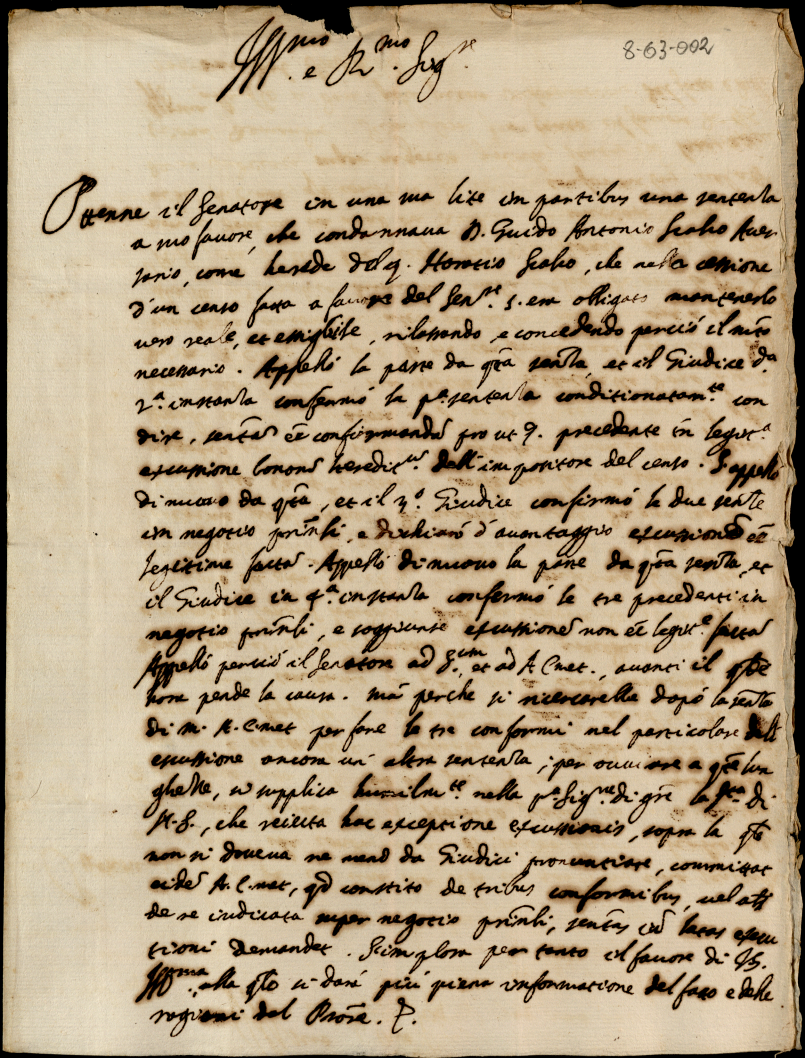 8-63-002
Ill.mo e R.mo Sig.re
Ottenne il Senatore in una sua lite in partibus una sentenza
a suo favore, che condannava D. Guido Antonio Aver-
sario, come herede del q. Horatio, che nella cessione
d'un censo fatta a favore del Sen.re era obligato mantenerlo
vero reale, et essigibile, rilassando, e concedendo perciò il
necessario. Appellò la parte da q̃ta senza, et il Giudice d.a
2.a instanza confermò la p.a sentenza conditionatam.te con
dire, confirmandã prout precedente in legit.a
excussione bonorũ heredit. dell'impositore del censo. S'appellò
di nuovo da q̃ta, et il 3.o Giudice confirmò le due senze
in negotio prinli, e dichiarò d'avantaggio excussionẽ eẽ
legitime factã. Appellò di nuovo la parte da q̃ta senza, et
il Giudice in 4.a instanza confermò le tre precedenti in
negotio prinli, e soggiunse excussionẽ non eẽ legit.e factã
Appellò perciò il Senatore ad et ad A. C. met., avanti il q̃le
hora pende la causa. ma perche si ricercarebbe dapò la senza
di m. A. C. met per fare le tre conformi nel particolare dell'
excussione ancora un altra sentenza; per ovviare a q̃te lun
ghezze, si supplica humilm.te nella p.a Sig.re di gr̃e la S.tà di
N. S., che reiecta hac exceptione excussionis, sopra la q̃le
non si doveva ne meno da Giudici pronuntiare, committat
eidẽ A. C. met, qd constito de tribus conformibus, vel
de re iudicata super negotio prinli, latas execu
tioni demandet. S'implora per tanto il favore di VS.
Ill.ma, alla q̃le si darà più piena informatione del fatto e delle
ragioni dal Prore.